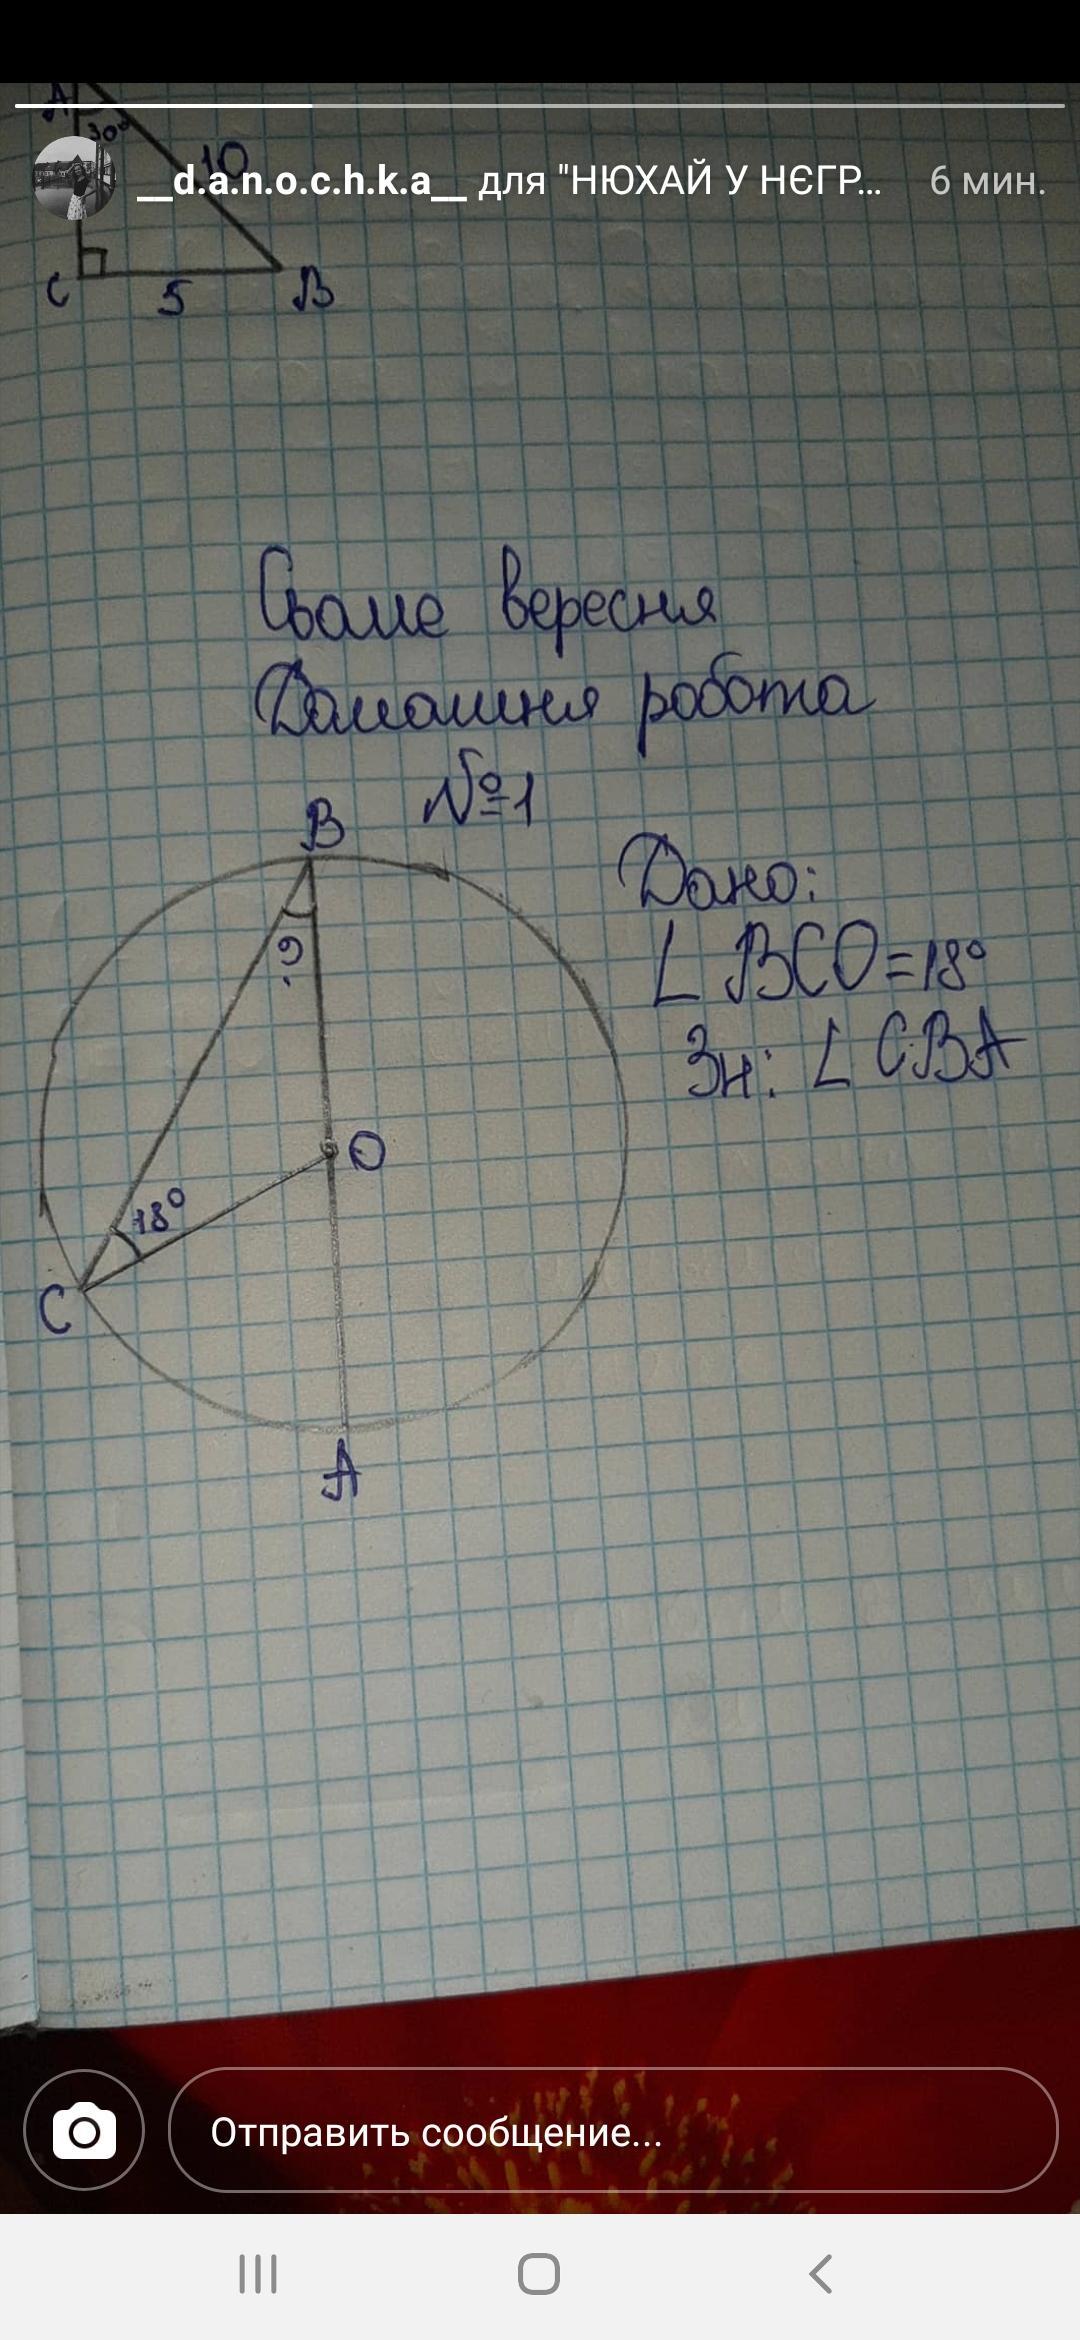 A
30°
10
__d.a.n.o.c.h.k.a__ для "НЮХАЙ У НЄГР... 6 мин.
C 5 B
Сьоме вересня
Домашня робота
№1
B
Дано:
∟ BCO=18°
?
Зн: ∟ CBA
O
18°
C
A
Отправить сообщение...